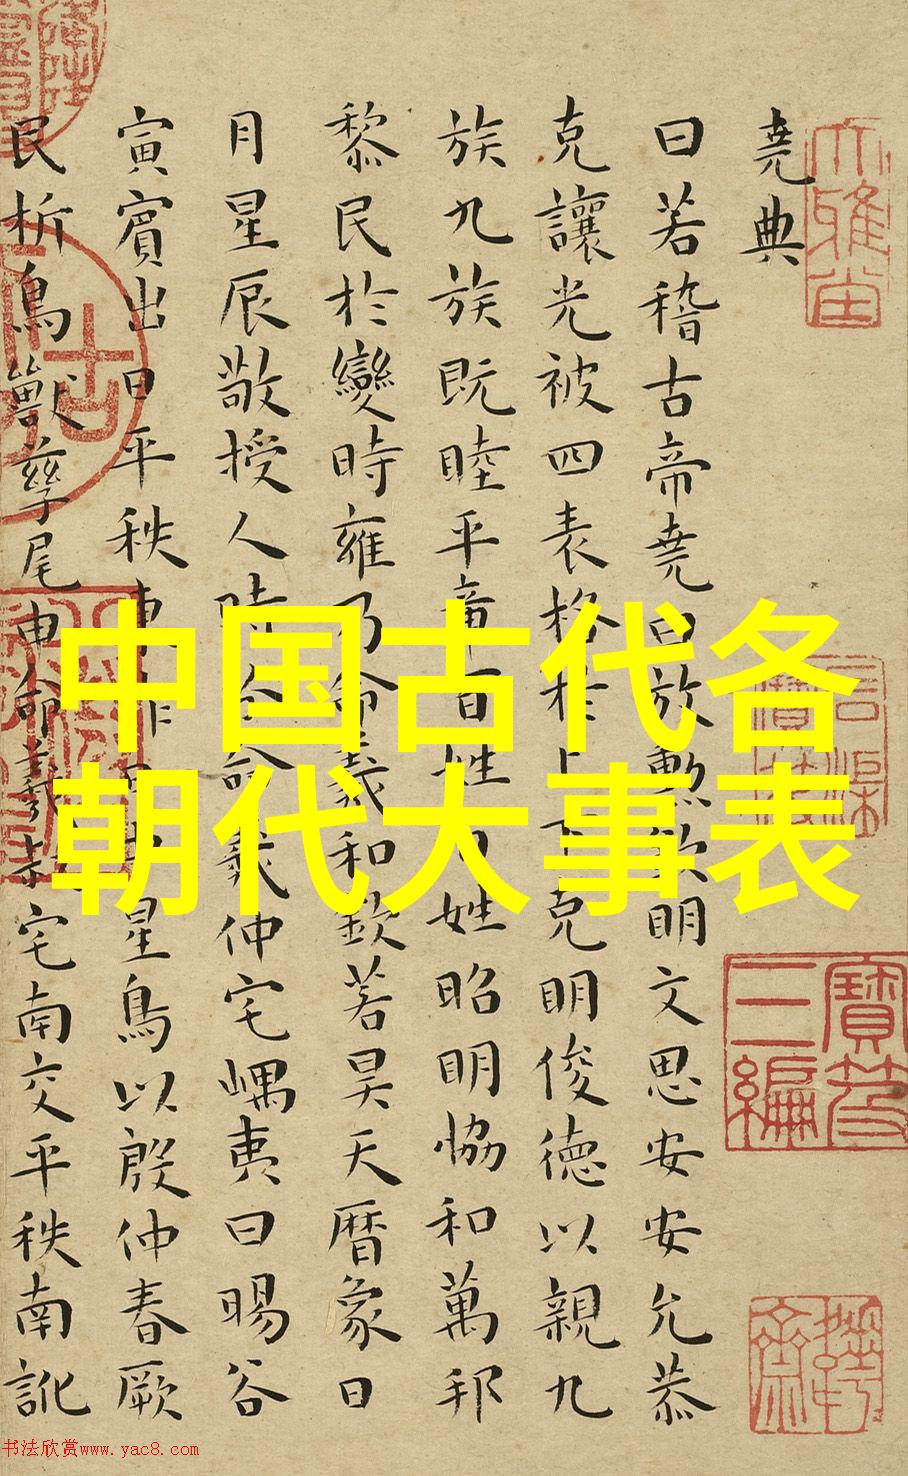 堯典
曰若稽古帝堯曰放勲欽明文思安安允恭
克讓光被四表格於上下克明俊德以親九
族九族既睦平章百姓百姓昭明恊和萬邦
黎民於變時雍乃命羲和欽若昊天曆象日
月星辰敬授人時分命羲仲宅嵎夷曰暘谷
寅賓出日平秩東作日中星鳥以殷仲春厥
民析鳥獸孳尾申命羲叔宅南交平秩南訛
中国古代各
朝代大事表
寶笈
三編
书法欣赏www.yac8.com